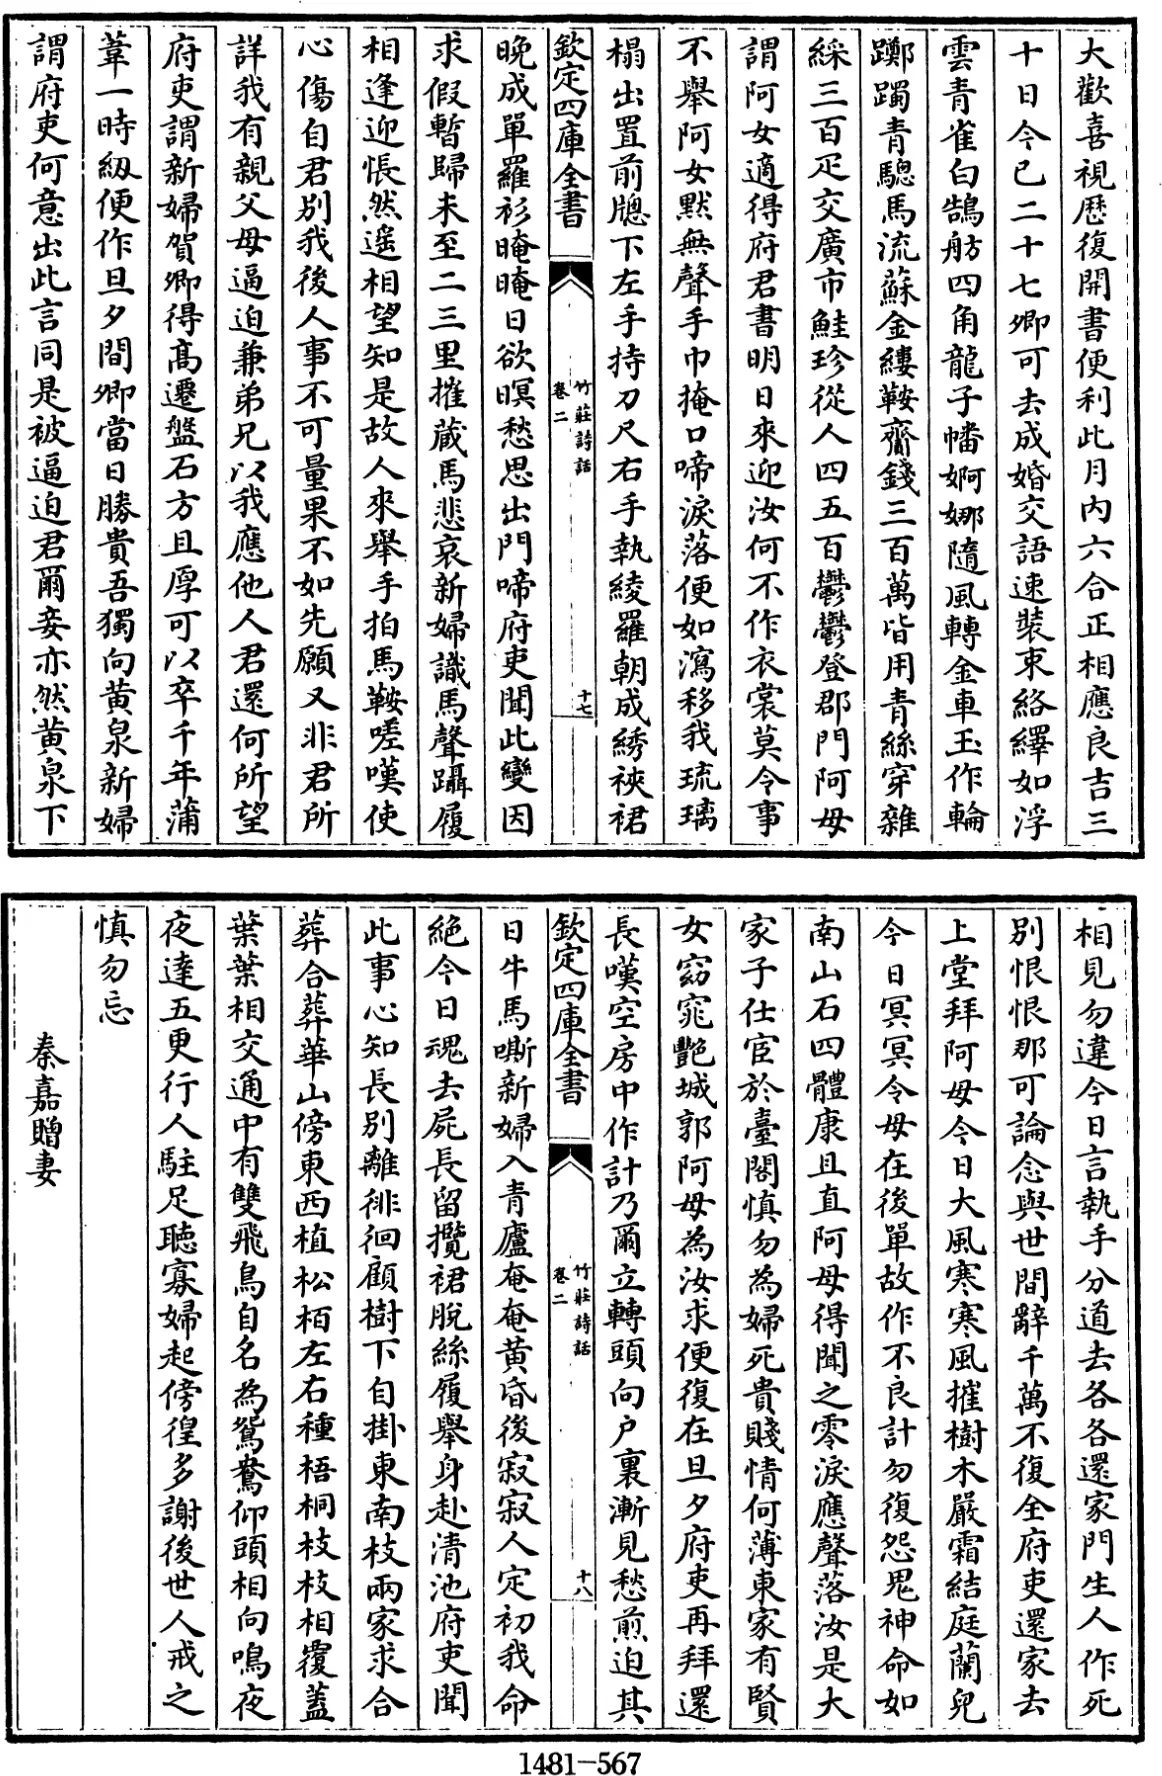 大歡喜視厯復開書便利此月内六合正相應良吉三
十日今已二十七卿可去成婚交語速裝束絡繹如浮
雲青雀白鵠舫四角龍子幡婀娜隨風轉金車玉作輪
躑躅青驄馬流蘇金縷鞍齎錢三百萬皆用青絲穿雜
綵三百疋交廣市鮭珍從人四五百鬱鬱登郡門阿母
謂阿女適得府君書明日來迎汝何不作衣裳莫令事
不舉阿女黙無聲手巾掩口啼淚落便如瀉移我琉璃
榻出置前牕下左手持刀尺右手執綾羅朝成綉裌裙
欽定四庫全書
竹莊詩話
卷二
十七
晚成單羅衫晻晻日欲暝愁思出門啼府吏聞此變因
求假暫歸未至二三里摧藏馬悲哀新婦識馬聲躡履
相逢迎悵然遥相望知是故人來舉手拍馬鞍嗟嘆使
心傷自君别我後人事不可量果不如先願又非君所
詳我有親父母逼迫兼弟兄以我應他人君還何所望
府吏謂新婦賀卿得髙遷盤石方且厚可以卒千年蒲
葦一時紉便作旦夕間卿當日勝貴吾獨向黄泉新婦
謂府吏何意出此言同是被逼迫君爾妾亦然黄泉下
相見勿違今日言執手分道去各各還家門生人作死
别恨恨那可論念與世間辭千萬不復全府吏還家去
上堂拜阿母今日大風寒寒風摧樹木嚴霜結庭蘭兒
今日冥冥令母在後單故作不良計勿復怨鬼神命如
南山石四體康且直阿母得聞之零淚應聲落汝是大
家子仕宦於臺閣慎勿為婦死貴賤情何薄東家有賢
女窈窕艷城郭阿母為汝求便復在旦夕府吏再拜還
長嘆空房中作計乃爾立轉頭向户裏漸見愁煎迫其
欽定四庫全書
竹莊詩話
卷二
十八
日牛馬嘶新婦入青廬奄奄黄昏後寂寂人定初我命
絶今日魂去屍長留攬裙脫絲履舉身赴清池府吏聞
此事心知長别離徘徊顧樹下自掛東南枝兩家求合
葬合葬華山傍東西植松栢左右種梧桐枝枝相覆蓋
葉葉相交通中有雙飛鳥自名為鴛鴦仰頭相向鳴夜
夜達五更行人駐足聴寡婦起傍徨多謝後世人戒之
慎勿忘
秦嘉贈妻
1481-567